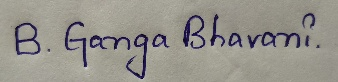 B. Ganga Bhavani.